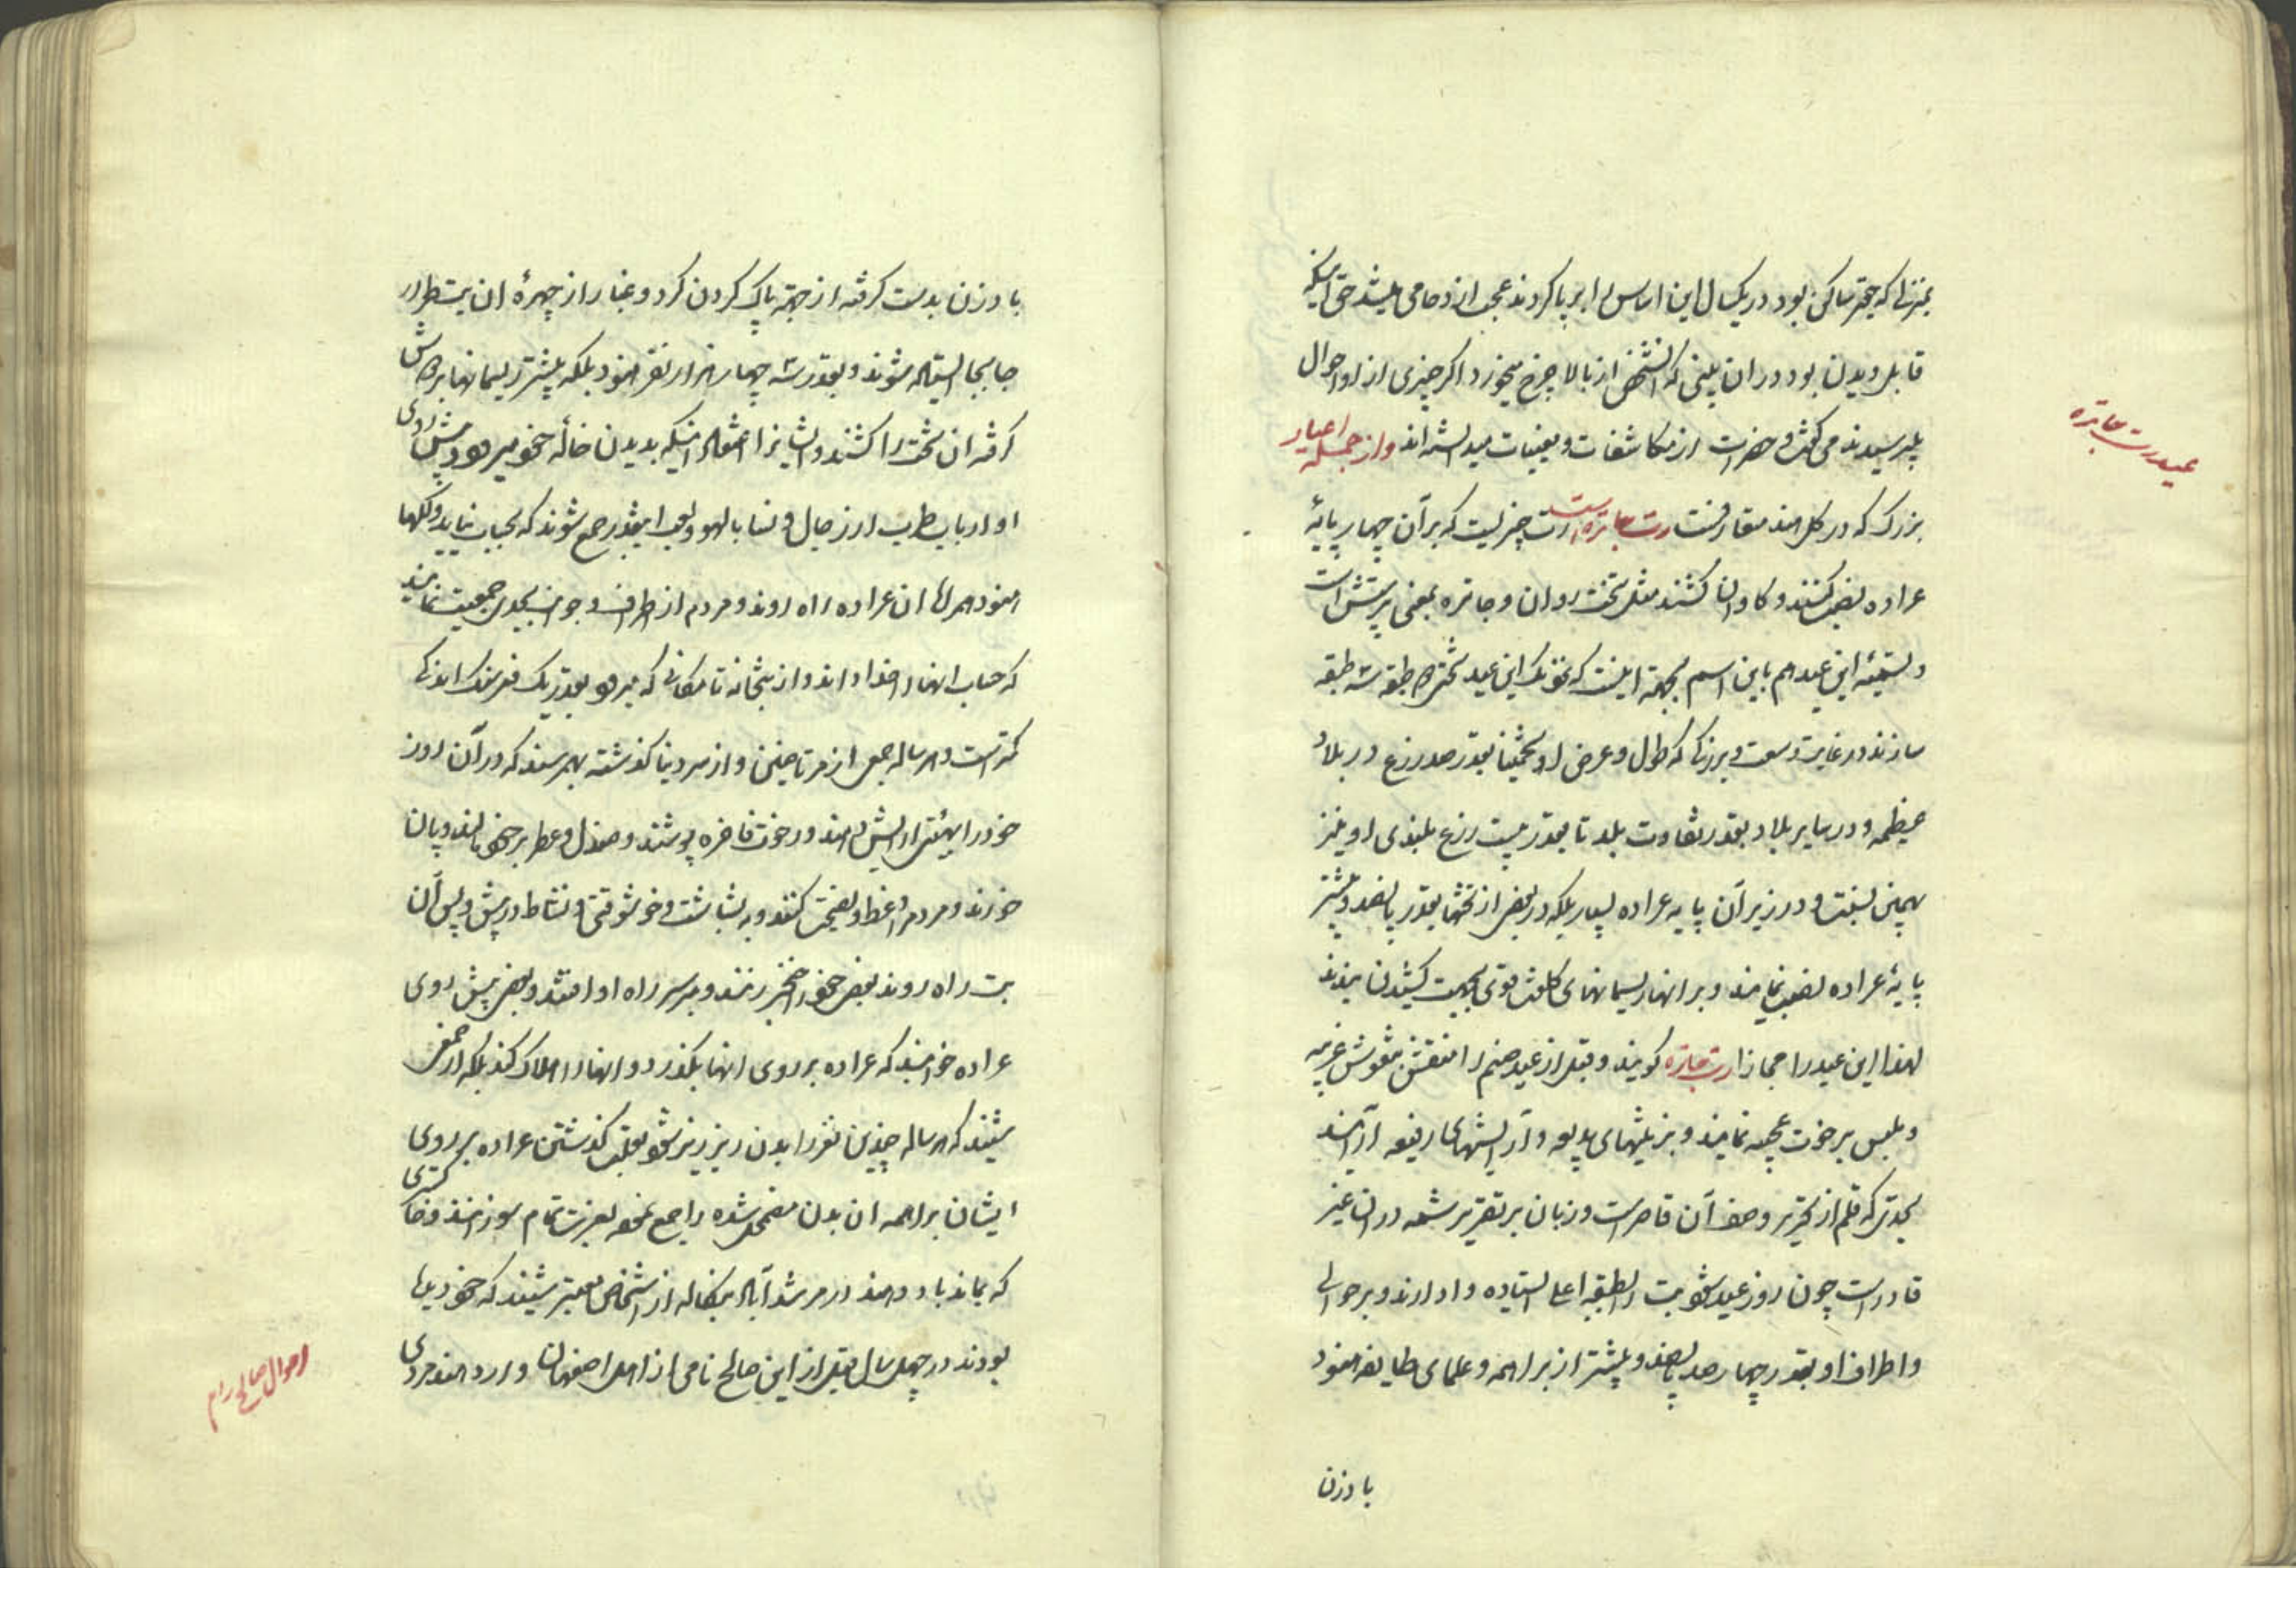 بمنزلی که حقیر ساکن بود در یکسال این اساس را بر پا کردند عجب ازدحامی میشد حتی اینکه
قابل دیدن بود در آن بلندی که آن شخص از بالا چرخ میخورد اگر چیزی از او احوال
میپرسیدند می گفت و حضرات از مکاشفات و یقینیات میدانسته اند و از جمله اعیاد
بزرگ که در کل هند متعارفست رت جاتره است رت چیزیست که بر آن چهار پایهٔ
عراده نصب کنند و گاوان کشند مثل تخت روان و جاتره بمعنی پرستش است
و تسمیهٔ این عید هم باین اسم بجهة اینست که نزدیک این عید تختی دو طبقه سه طبقه
سازند در غایت وسعت و بزرگی که طول و عرض او تخمیناً بقدر صد زرع در بلاد
عظیمه و در سایر بلاد بقدر تفاوت بلد تا بقدر بیست زرع بلندی او نیز
بهمین نسبت و در زیر آن پایه عراده بسیار بلکه در بعض از تختها بقدر پانصد و بیشتر
پایهٔ عراده نصب نمایند و بر آنها ریسمانهای کلفت قوی بجهت کشیدن بندند
لهذا این عید را مجازا رت جاتره گویند و قبل از عید صنم را منقش بنقوش غریبه
و ملبس برخوت عجیبه نمایند و بزینتهای بدیعه و آرایشهای رفیعه آرایند
بحدی که قلم از تحریر وصف آن قاصر است و زبان بر تقریر شمه در آن غیر
قادر است چون روز عید شود بت را بطبقه اعلی ایستاده وا دارند و بر حوالی
و اطراف او بقدر چهار صد پانصد و بیشتر از براهمه و علمای طایفه هنود
بادزن
عید رت جاتره
بادزن بدست گرفته از جهة پاک کردن گرد و غبار از چهرهٔ ان بت طرار
جابجا ایستاده شوند و بقدر سه چهار هزار نفر هنود بلکه بیشتر ریسمانها بر دوش
گرفته ان تخت را کشند و ایشانرا اعتقاد اینکه بدیدن خالهٔ خود میرود پیش روی
او ارباب طرب از رجال و نسا با لهو و لعب اینقدر جمع شوند که بحساب نیاید و لکها
هنود همراه ان عراده راه روند و مردم از اطراف و جوانب بحدی جمعیت نمایند
که حساب انها را خدا داند و از بتخانه تا مکانی که میرود بقدر یک فرسنک اندکی
کمتر است و هر ساله جمعی از مرتاضین و از سر دنیا گذشته بهم رسند که در آن روز
خود را بهیئتی آرایش دهند و رخوت فاخره پوشند و صندل و عطر بر خود مالند و پان
خورند و مردم را وعظ و نصیحت کنند و به بشاشت و خوشوقتی و نشاط در پیش و پس آن
بت راه روند بعضی خود را خنجر زنند و بر سر راه او افتند و بعضی پیش روی
عراده خوابند که عراده بر روی انها بگذرد و انها را هلاک کند بلکه از بعضی
شنیدند که هر ساله چندین نفر را بدن ریز ریز شود بعلت گذشتن عراده بر روی
ایشان براهمه ان بدن مضمحل شده را جمع نموده بعزت تمام سوزانند و خاکستری
که بماند بباد دهند در مرشد آباد بنگاله از اشخاص معتبر شنیدند که خود دیده
بودند در چهل سال قبل از این صالح نامی از اهل اصفهان وارد هند مردی
احوال صالح رام